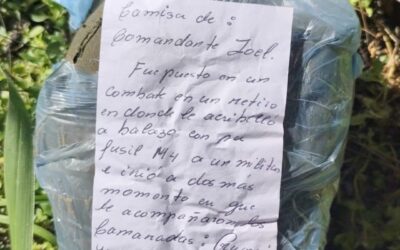 Camisa de :
Comandante Joel.
Fue puesto en un
combate en un retiro
en donde le acribilló
a balazo con su
fusil M4 a un militar
e inició a dos más
momento en que
le acompañaron los
Camaradas :